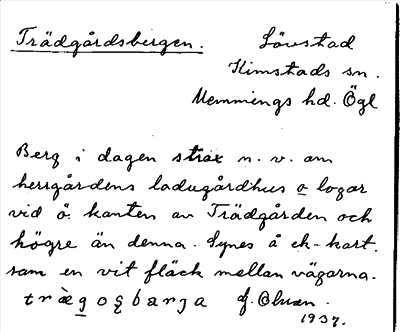 Trädgårdsbergen. Lövstad
Kimstads sn.
Memmings hd. Ögl
Berg i dagen strax n. v. om
herrgårdens ladugårdhus o logar
vid ö. kanten av Trädgården och
högre än denna. Synes å ek-kart.
som en vit fläck mellan vägarna.
1937.